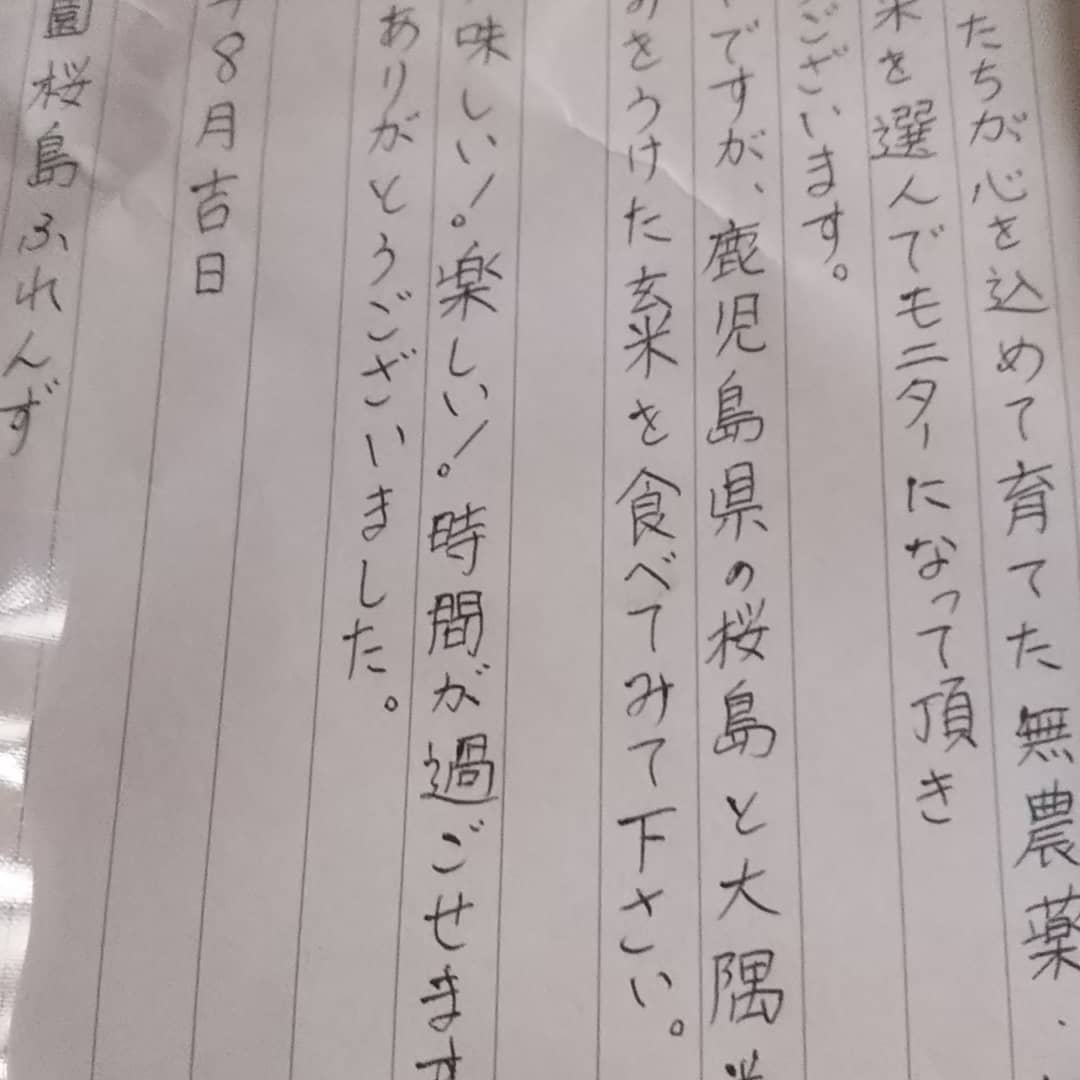 たちが心を込めて育てた無農薬・
米を選んでモニターになって頂き
ございます。
ですが、鹿児島県の桜島と大隅
みをうけた玄米を食べてみて下さい。
味しい!楽しい!時間が過ごせます
ありがとうございました。
8月吉日
園桜島ふれんず